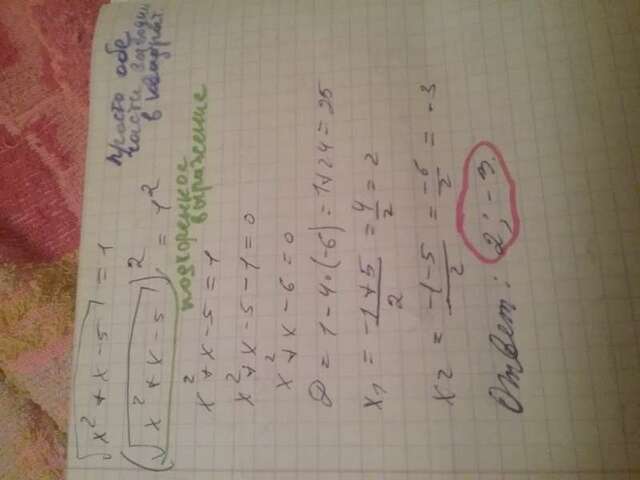 √x² + x - 5 = 1
просто обе
части возводим
в квадрат
(√x² + x - 5)² = 1²
подкоренное
выражение
x² + x - 5 = 1
x² + x - 5 - 1 = 0
x² + x - 6 = 0
D = 1 - 4·(-6) = 1+24 = 25
x1 = -1+5/2 = 4/2 = 2
x2 = -1-5/2 = -6/2 = -3
Ответ: 2; -3.